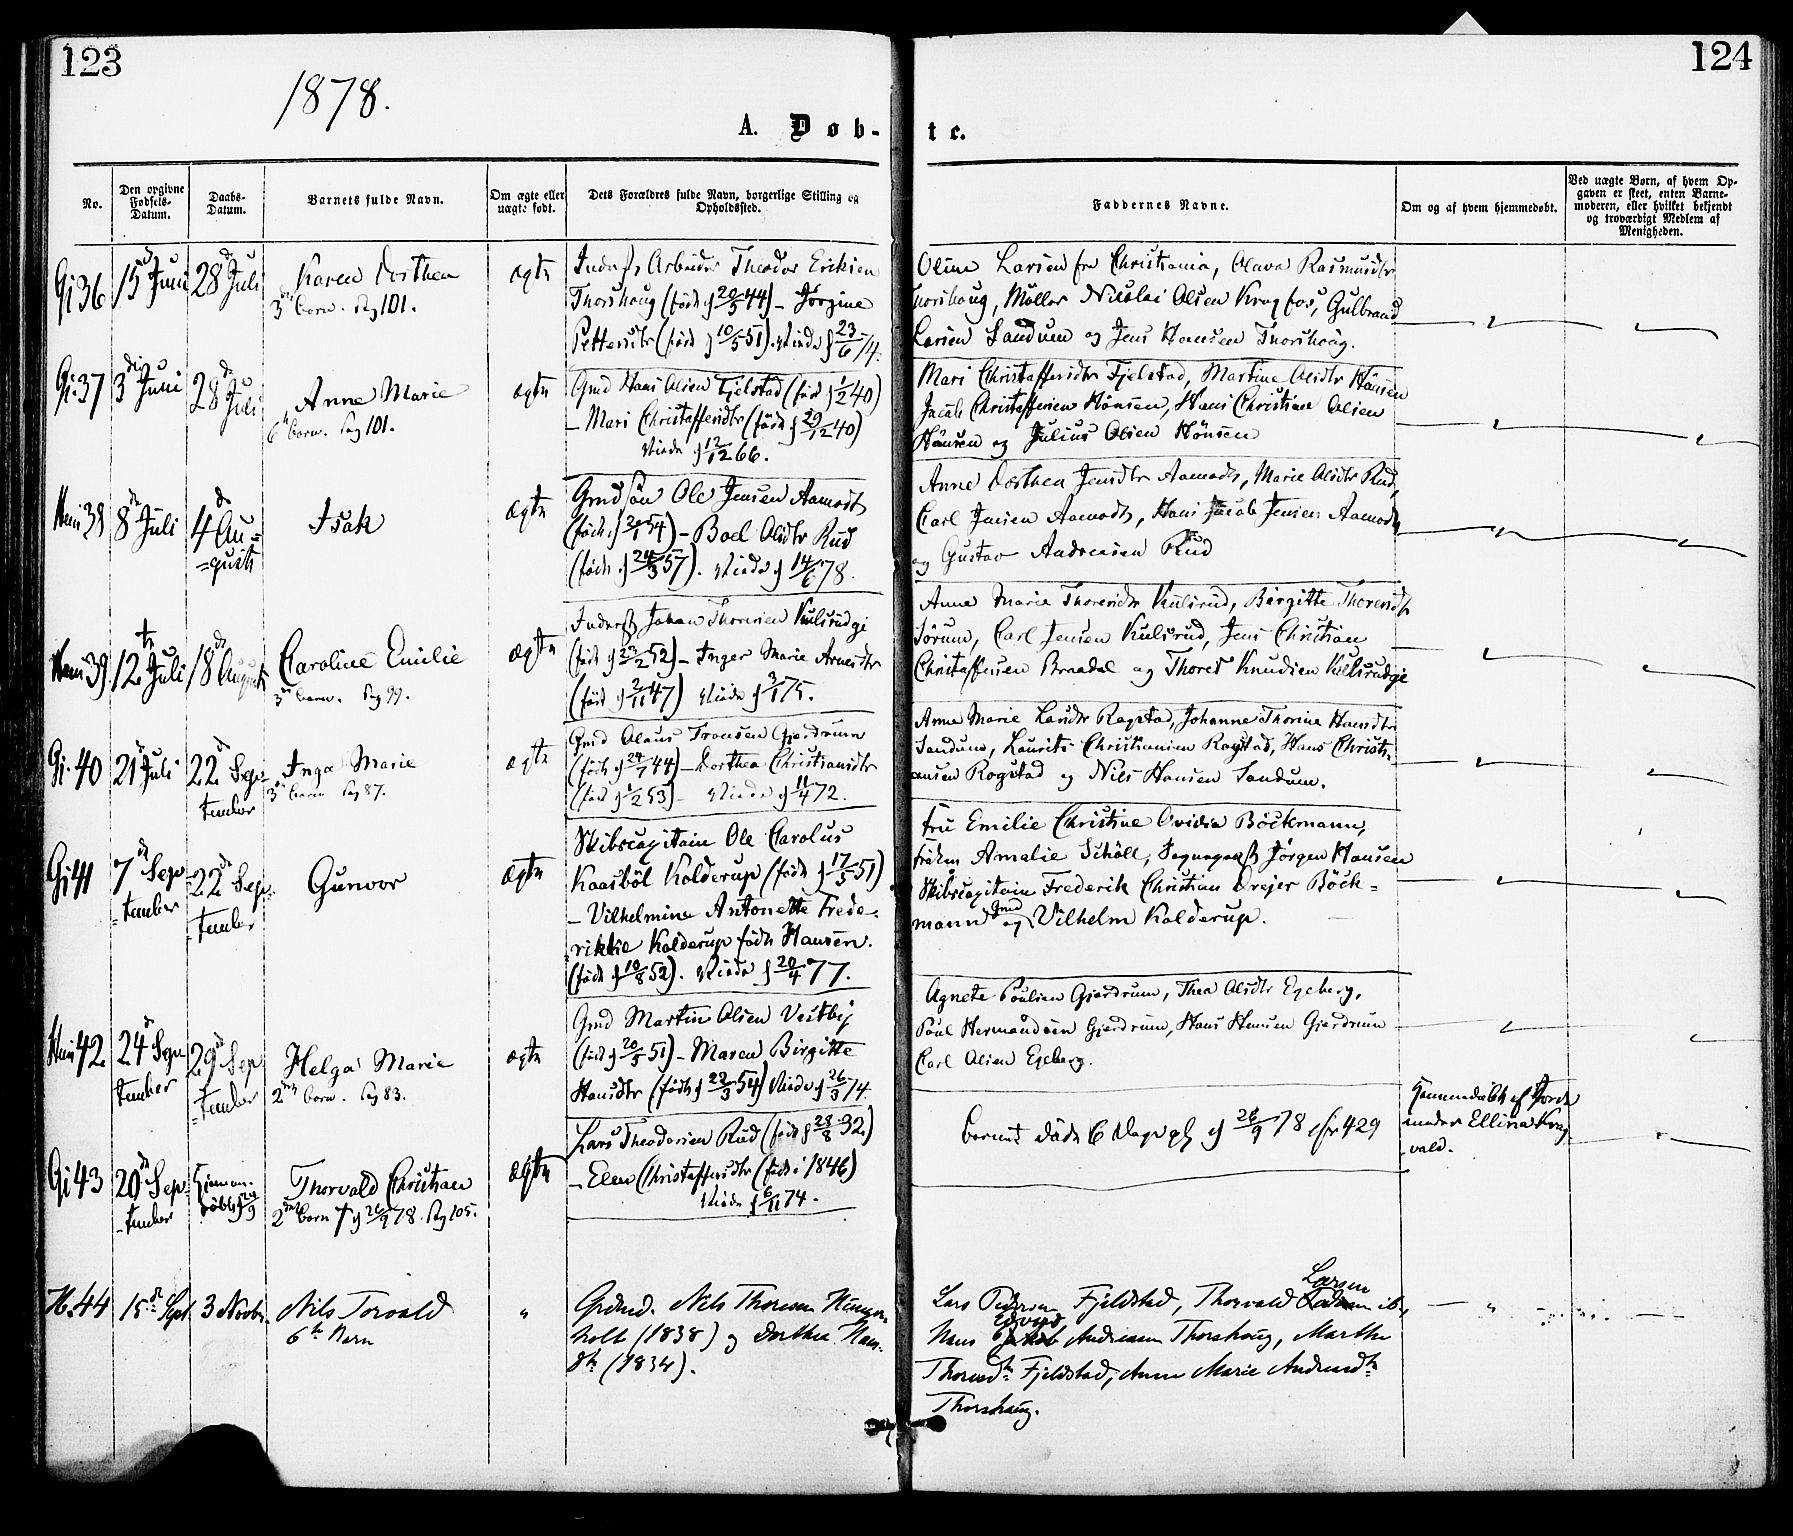 123
124
1878.
A. Døb-
te.
No.
Den opgivne Fødsels-Datum.
Daabs-Datum.
Barnets fulde Navn.
Om ægte eller uægte født.
Dets Forældres fulde Navn, borgerlige Stilling og Opholdssted.
Faddernes Navne.
Om og af hvem hjemmedøbt.
Ved uægte Børn, af hvem Op-
gaven er skeet, enten Barne-
moderen, eller hvilket bekjendt
og troværdigt Medlem af
Menigheden.
Gi 36
15 Juni
28 Juli
Karen Dorthea
3 barn. Pag 101.
ægte
Arbeider Theodor Eriksen
Thorshaug (født 20/5 44) – Jørgine
Pettersdtr (født 10/5 51). Viede 23/6 74.
Oline Larsen fra Christiania, Olava Rasmusdtr
Thorshaug, Møller Nicolai Olsen Kragfos, Gulbrand
Larsen Sandum og Jens Hansen Thorshaug.
Gi. 37
3 Juni
28 Juli
Anne Marie
6 barn. Pag 101.
ægte
Gmd Hans Olsen Fjelstad (født 1/2 40)
– Mari Christoffersdtr (født 29/12 40)
Viede 12/12 66.
Mari Christoffersdtr Fjelstad, Martine Olsdtr Hønsen
Jacob Christoffersen Hønsen, Hans Christian Olsen
Hønsen og Julius Olsen Hønsen
38
8 Juli
4 Au=
=gust
Isak
ægte
Ole Jensen Aamodt
– Boel Olsdtr Rud
(født 24/3 57). Viede 14/6 78.
Anne Dorthea Jensdtr Aamodt, Marie Olsdtr Rud,
Carl Jensen Aamodt, Hans Jacob Jensen Aamodt
og Gustav Andreasen Rud
39
12 Juli
18 August
Caroline Emilie
3 barn. Pag 99.
ægte
Inderst Johan Thoresen Kulsrudgi
(født 23/2 52) – Inger Marie Arnesdtr
(født 2/11 47) Viede 3/1 75.
Anne Marie Thoresdtr Kulsrud, Birgitte Thoresdtr
Sørum, Carl Jensen Kulsrud, Jens Christian
Christoffersen Braadal og Thores Knudsen Kulsrudgi
Gi. 40
21 Juli
22 Sep-
tember
Inga Marie
3 barn Pag 87.
ægte
Gmd Olaus Tronsen Gjerdrum
(født 24/7 44) – Dorthea Christiansdtr
(født 1/2 53) – Viede 11/4 72.
Anne Marie Larsdtr Rogstad, Johanne Thorine Hansdtr
Sandum, Laurits Christiansen Rogstad, Hans Christi-
ansen Rogstad og Nils Hansen Sandum.
Gi 41
7 Sep-
-tember
22 Sep-
-tember
Gunvor
ægte
Skibscapitain Ole Carolus
Kaasbøl Kolderup (født 17/5 51)
– Vilhelmine Antonette Frede-
rikke Kolderup født Hansen.
(født 10/8 52). Viede 20/4 77.
Fru Emilie Christine Ovidia Böckmann,
Frøken Amalie Schöll, Jørgen Hansen
Skibscapitain Frederik Christian Drejer Böck=
mann og Vilhelm Kolderup.
42
24 Sep
tember
29 Sep
-tember
Helga Marie
2 barn. Pag 83.
ægte
Gmd Martin Olsen Vestby
(født 20/5 51) – Maren Birgitte
Hansdtr (født 22/3 54) Viede 26/3 74.
Agnete Poulsen Gjerdrum, Thea Olsdtr Egeberg,
Poul Hermandsen Gjerdrum, Hans Hansen Gjerdrum
Carl Olsen Egeberg.
Gi 43
20 Sep-
-tember
Hjemme-
døbt 24/9
Thorvald Christian
2 barn † 26/9 78. Pag 105.
ægte
Lars Theodorsen Rud (født 28/8 32)
– Elen Christoffersdtr (født i 1846)
Viede 6/11 74.
Barnet døde 6 Dage gl 26/9 78 429
Hjemmedøbt af Jorde
moder Ellina Krag
vald.
H. 44
15 Sept.
3 Novbr.
Nils Torvald
6te Barn
"
Grdmd. Nils Thoresen
holt (1838) og Dorthea Han-
dtr (1834).
Larsen
Lars Pedersen Fjeldstad, Thorvald ib.,
Edvard
Hans Andreasen Thorshaug, Marthe
Thoresdtr Fjeldstad, Anne Marie Andreasdtr
Thorshaug.